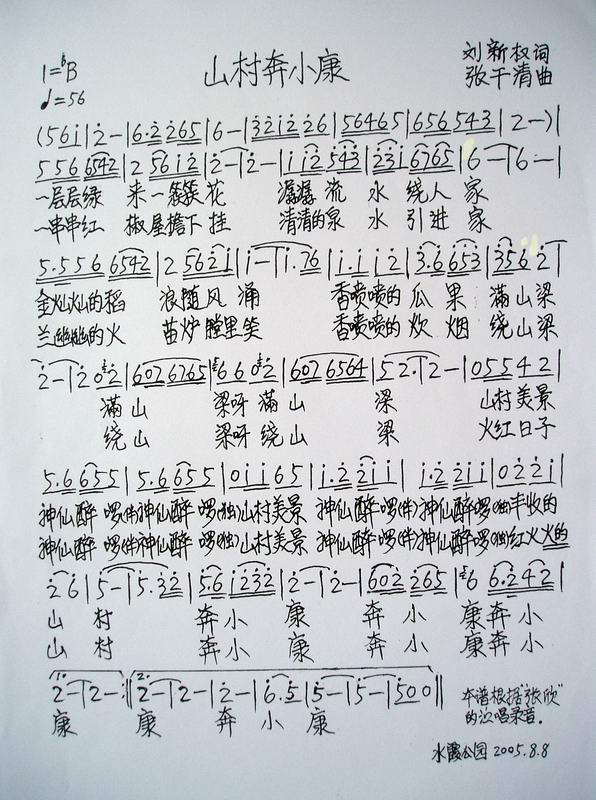 山村奔小康
刘新权词
张千清曲
1=♭B
♩=56
(5 6 0 i | 2 — | 6·2 2 6 5 | 6 — | 3 2 i 2 2 6 | 5 6 4 6 5 | 6 5 6 5 4 3 | 2 — ) |
5 5 6 6 5 4 2 | 2 5 6 i 2 | 2 — | 2 — | i i 2 5 4 3 | 2 3 i 6 7 6 5 | 6 — | 6 — |
一层层绿 来一簇簇花 潺潺流 水 绕人 家
一串串红 椒屋擔下挂 清清的泉 水 引进 家
5·5 5 6 6 5 4 2 | 2 5 6 2 i | i — | i·7 6 | i·i i 2 | 3·6 6 5 3 | 3 5 6 2 |
金灿灿的稻 浪随风 涌 香喷喷的 瓜 果 滿山梁
兰幽幽的火 苗炉膛里笑 香喷喷的 炊 烟 绕山梁
2 — | 2 0 2 | 6 0 2 6 7 6 5 | 6 6 0 2 | 6 0 2 6 5 6 4 | 5 2· | 2 — | 0 5 5 4 2 |
滿山 梁呀 滿山 梁 山村美景
绕山 梁呀 绕山 梁 火红日子
5·6 6 5 5 | 5·6 6 5 5 | 0 i i 6 5 | i·2 2 i i | i·2 2 i i | 0 2 2 i |
神仙醉 啰(伴)神仙醉 啰(独)山村美景 神仙醉 啰(伴)神仙醉啰(独)丰收的
神仙醉 啰(伴)神仙醉 啰(独)山村美景 神仙醉 啰(伴)神仙醉啰(独)红火火的
2 6 | 5 — | 5·3 2 | 5·6 i 2 3 2 | 2 — | 2 — | 6 0 2 2 6 5 | 6 6·2 4 2 |
山 村 奔小 康 奔小 康奔小
山 村 奔小 康 奔小 康奔小
1· 2 — | 2 — :‖ 2· 2 — | 2 — | 2 — | 6·5 | 5 — | 5 — | 5 0 0 ‖
康 康 奔 小 康
本谱根据“张欣”
的演唱录音.
水霞公园 2005.8.8